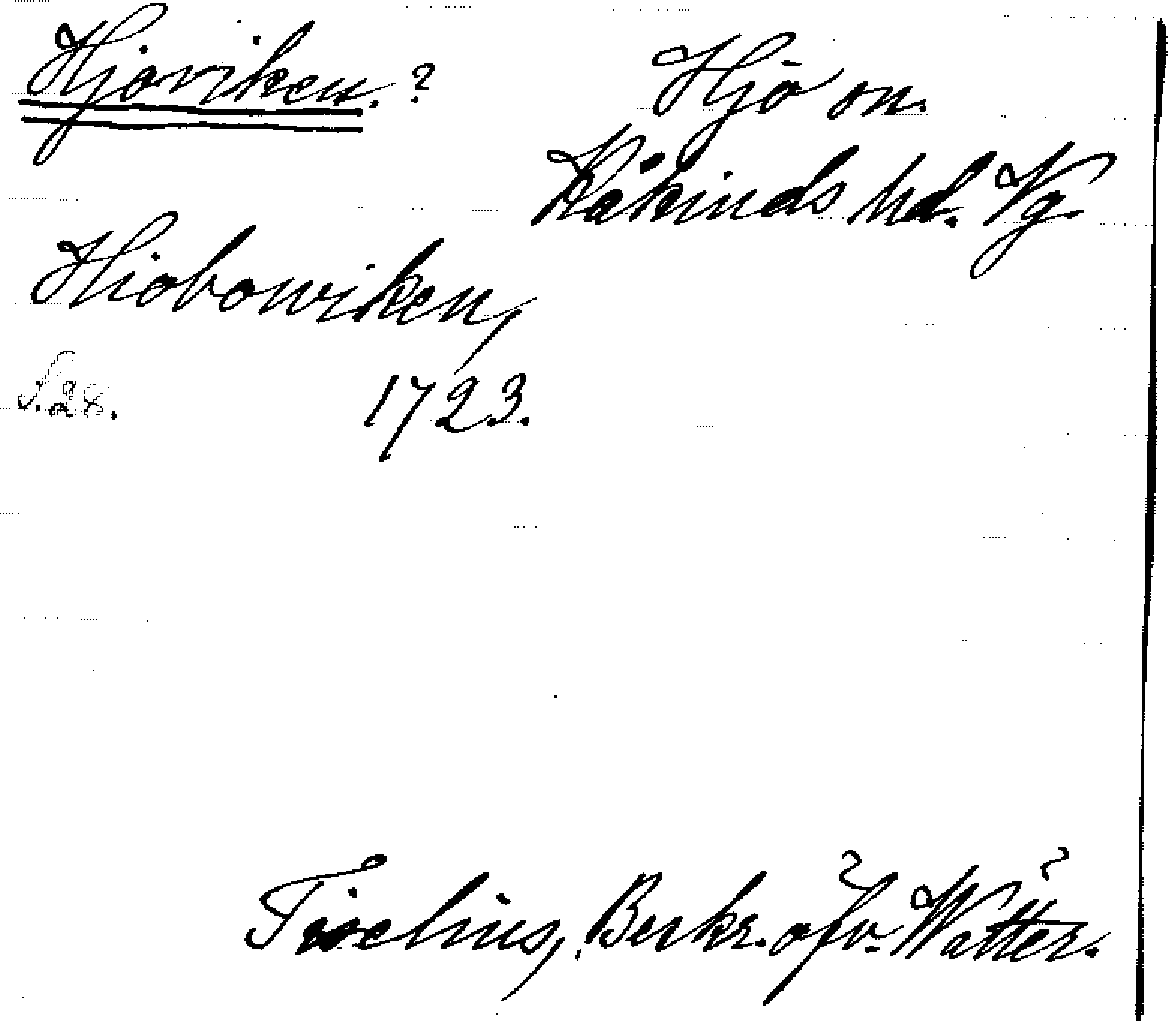 Hjoviken.?
Hjo on.
Kåkinds hd. Vg.
Hiobowiken,
S. 28.
1723.
Tiselius, Beskr. öfv. Wätter.